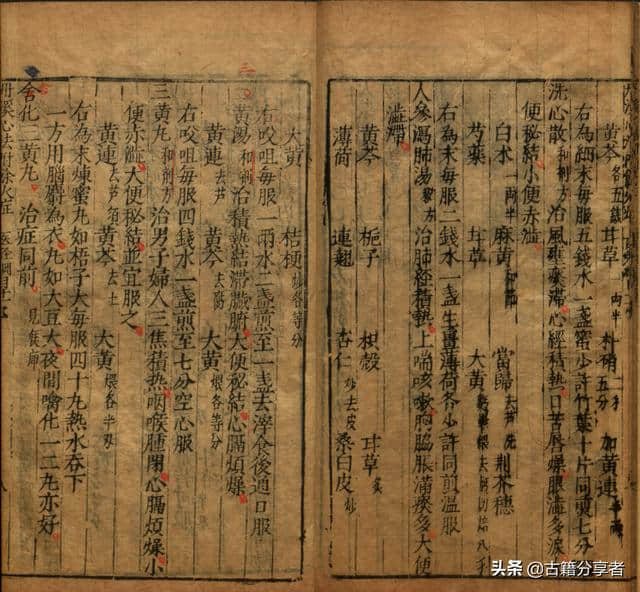 黄芩 各五錢 甘草 一両半 朴硝 一才五分 加黄連 半両
右為細末每服五錢水一盞
洗心散 和剂方 治風壅痰滞心經積熱口苦唇燥眼澁多淚
便秘結小便赤澁
白朮 一両半 麻黄 當歸 去芦洗 荆芥穗
芍藥 甘草 大黄
右為末每服二錢水一盞生姜薄荷各少許同煎温服
人參瀉肺湯 治肺經積熱上喘咳嗽胸脇脹滿痰多大便
澁滞
黄芩 梔子 枳殼 甘草 炙
薄荷 連翹 杏仁 炒去皮 桑白皮 炒
大黄 桔梗 炒各等分
右㕮咀每服一兩水二盞煎至一盞去滓食後通口服
黄湯 和剂 治積熱結滞臟腑大便秘結心膈煩燥
黄連 去芦 黄芩 去腐 大黄 煨各等分
右㕮咀每服四錢水一盞煎至七分空心服
三黄丸 和剂方 治男子婦人三焦積热咽喉腫閉心膈煩燥小
便赤澁大便秘結並宜服之
黄連 去芦須 黄芩 去土 大黄 煨各半两
右為末煉蜜丸如梧子大每服四十丸熱水吞下
一方用腦麝為衣丸如大豆大夜間噙化一二丸亦好
含化三黄丸 治症同前
丹溪心法附餘火症
头条 @古籍分享者